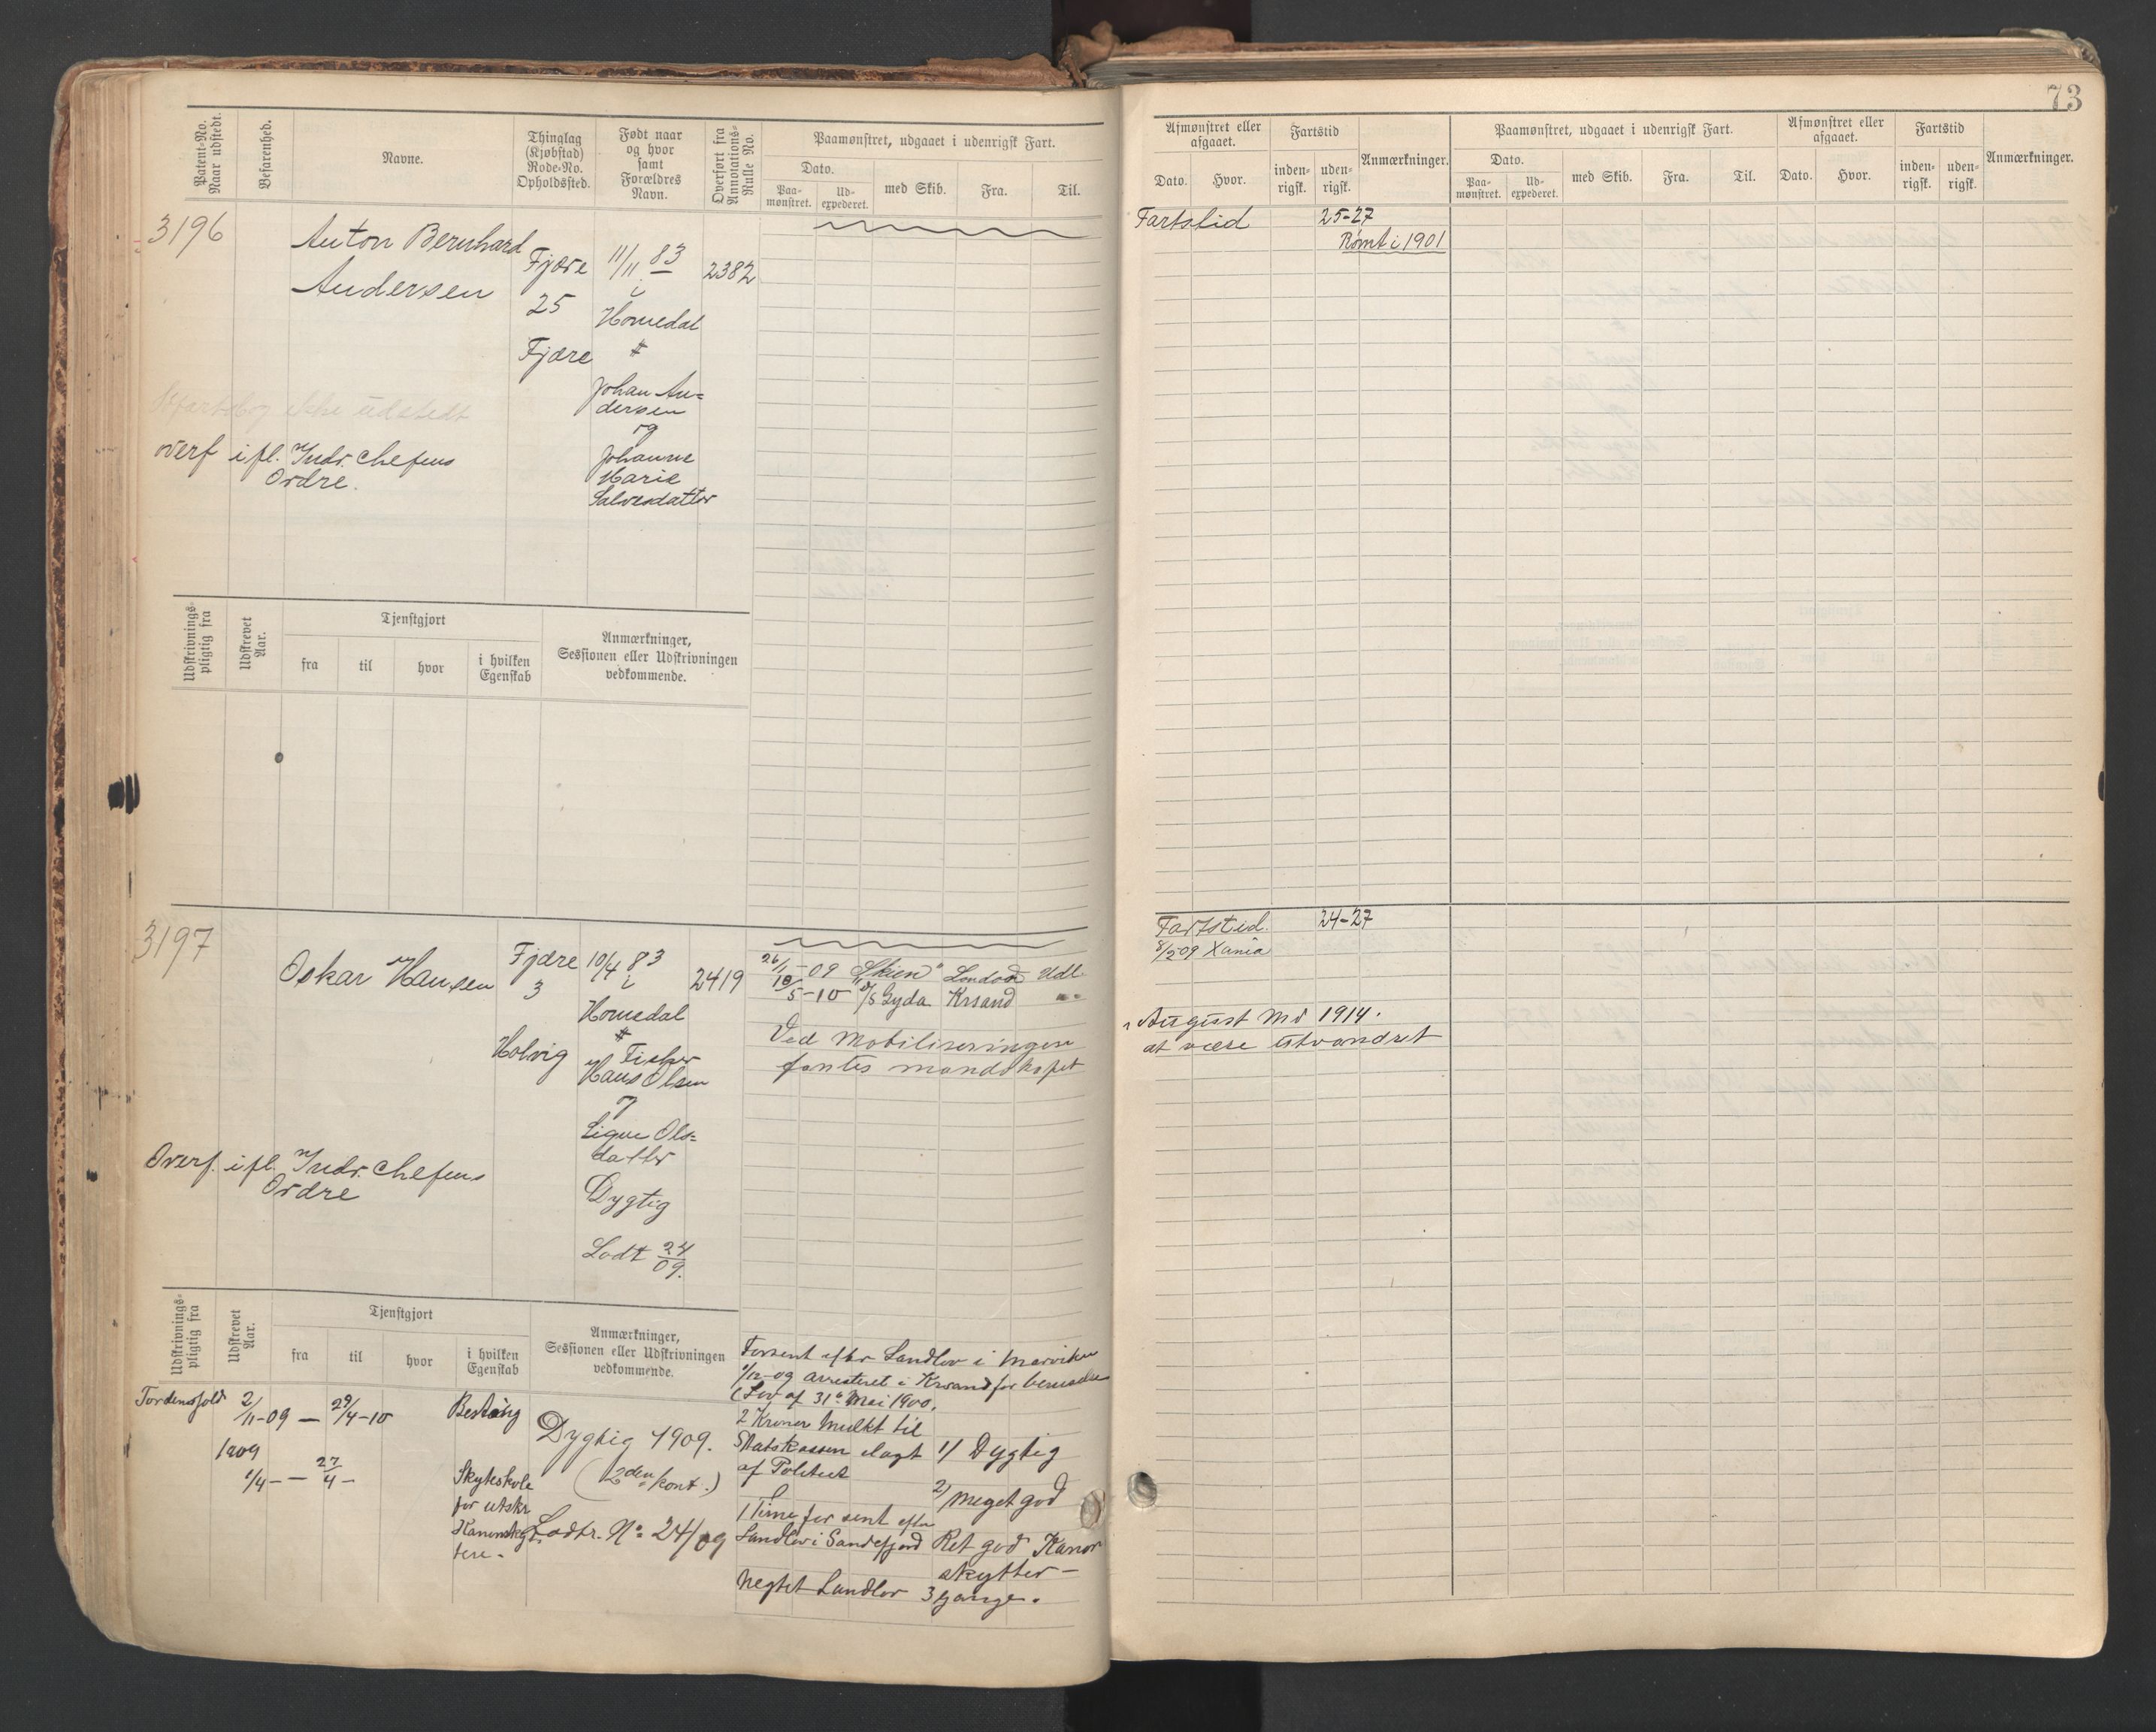 73
Patent-No. Naar udstedt.
Besarenhed.
Navne.
Thinglag (Kjøbstad) Rode-No. Opholdssted.
Født naar og hvor samt Forældres Navn.
Overført fra Annotations-Rulle No.
Paamønstret, udgaaet i udenrigsk Fart.
Dato.
Paa-mønstret.
Ud-expederet.
med Skib.
Fra.
Til.
Afmønstret eller afgaaet.
Dato.
Hvor.
Fartstid
inden-rigsk.
uden-rigsk.
Anmærkninger.
Paamønstret, udgaaet i udenrigsk Fart.
Dato.
Paa-mønstret.
Ud-expederet.
med Skib.
Fra.
Til.
Afmønstret eller afgaaet.
Dato.
Hvor.
Fartstid
inden-rigsk.
uden-rigsk.
Anmærkninger.
3196
Anton Bernhard
Andersen
Fjære
25
Fjære
11/11 83
i
Homedal
#
Johan An=
dersen
og
Johanne
Marie
Salvesdatter
2382
Fartsbog ikke udstedt
overf ifl. Indr. chefens
Ordre.
Fartstid 25-27
Rømt i 1901
Udskrivnings-pligtig fra
Udskrevet Aar.
Tjenstgjort
fra
til
hvor
i hvilken Egenskab
Anmærkninger, Sessionen eller Udskrivningen vedkommende.
3197
Oskar Hansen
Fjære
3
Holvig
10/4 83
i
Homedal
#
Fisker
Hans Olsen
og
Signe Ols=
datter
Dygtig
Lodt 24/09.
2419
26/11-09 "Skien" London Udl.
18/5-10 D/S Gyda Krsand "-
Ved Mobiliseringen
fantes mandskapet
Overf. ifl. Indr. chefens
Ordre
Fartstid. 24-27
8/5 09 Xania
i August Md 1914.
at være utvandret
Udskrivnings-pligtig fra
Udskrevet Aar.
Tjenstgjort
fra
til
hvor
i hvilken Egenskab
Anmærkninger, Sessionen eller Udskrivningen vedkommende.
Tordenskjold 2/11-09 — 29/4-10
1909
1/4 - — 27/4 -
Skyteskole
for utskr
Dygtig 1909.
(2den kont.)
Lodtr. No 24/09
Forsent efter Landlov i Marviken
1/12-09 arresteret i Krsand for beruselse
(Lov af 31te Mai 1900.
2 Kroner Mulkt til
Statskassen ilagt
af Politiet
1 Time for sent efter
Landlov i Sandefjord
Negtet Landlov 3 gange.
1/ Dygtig
2/ Meget god
Ret god Kanon
skytter -